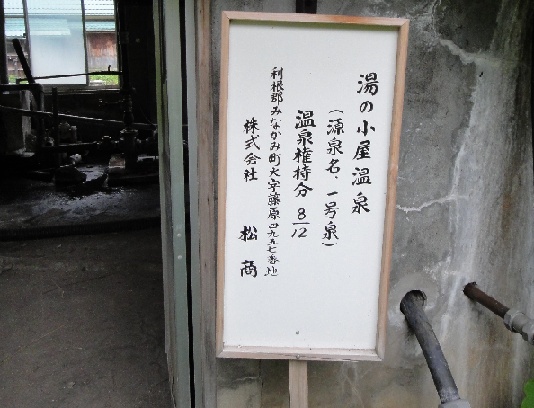 湯の小屋温泉
(源泉名、一号泉)
温泉権持分 8/12
利根郡みなかみ町大字藤原四九五七番地
株式会社 松商